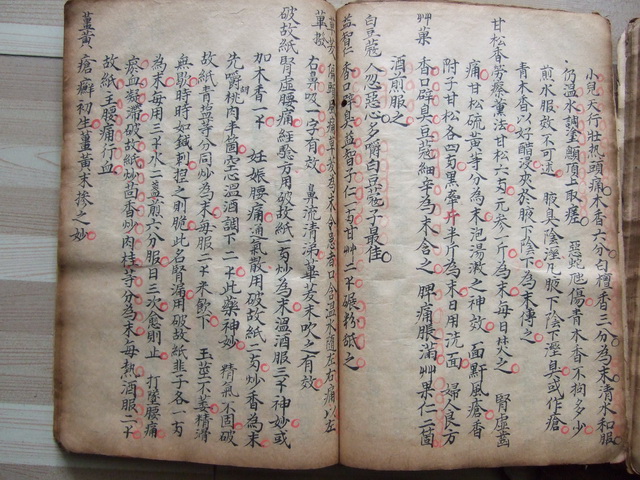 小兒天行壯熱頭痛木香六分白檀香三分為末清水和服
仍温水調塗顖頂上取瘥 惡蛇虺傷青木香不拘多少
煎水服效不可述 腋臭陰溼凡腋下陰下溼臭或作瘡
青木香以好醋浸夾於腋下陰下為末傅之
甘松香勞瘵薰法甘松六兩元參一斤為末每日焚之 腎虛齒
痛甘松硫黃等分為末泡湯漱之神效 面䵟風瘡香
附子甘松各四兩黑牽牛半斤為末日用洗面 婦人食方
艸菓 香口辟臭豆蔻細辛為末含之 脾痛脹滿艸果仁二箇
酒煎服之
白豆蔻 人忽惡心多嚼白豆蔻子最佳
益智仁 香口辟臭益智子仁一兩甘艸二錢碾粉舐之
蓽撥 偏頭痛蓽茇為末令患者口含温水隨左右痛以左
右鼻吸一字有效 鼻流清涕蓽茇末吹之有效
破故紙 腎虛腰痛經驗方用破故紙一兩炒為末温酒服三錢神妙或
加木香一錢 妊娠腰痛通氣散用破故紙二兩炒香為末
先嚼胡桃肉半箇空心温酒調下二錢此藥神妙 精氣不固破
故紙青鹽等分同炒為末每服二錢米飲下 玉莖不萎精滑
無歇時時如鍼刺捏之則脆此名腎漏用破故紙韭子各一兩
為末每用三錢水二盞煎六分服日三次愈則止 打墜腰痛
瘀血凝滯破故紙炒茴香炒肉桂等分為末每熱酒服二錢
故紙主腰痛行血
薑黃 瘡癬初生薑黃末摻之妙